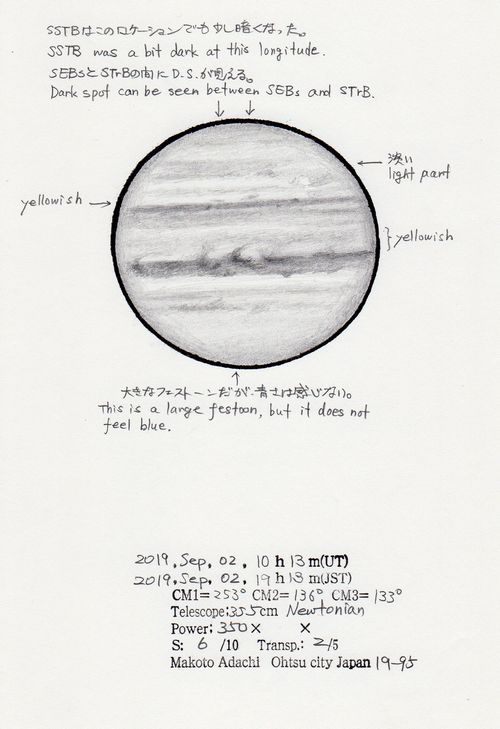 SSTBはこのロケーションでも少し暗くなった。
SSTB was a bit dark at this longitude.
SEBsとSTrBの間にD.S.が見える。
Dark spot can be seen between SEBs and STrB.
淡い
light part
yellowish
yellowish
大きなフェストーンだが、青さは感じない。
This is a large festoon, but it does not
feel blue.
2019, Sep, 02, 10 h 13 m(UT)
2019, Sep, 02, 19 h 13 m(JST)
CM1= 253° CM2= 136° CM3= 133°
Telescope; 35.5cm Newtonian
Power; 350 × ×
S: 6 /10 Transp.: 2/5
Makoto Adachi Ohtsu city Japan 19-95